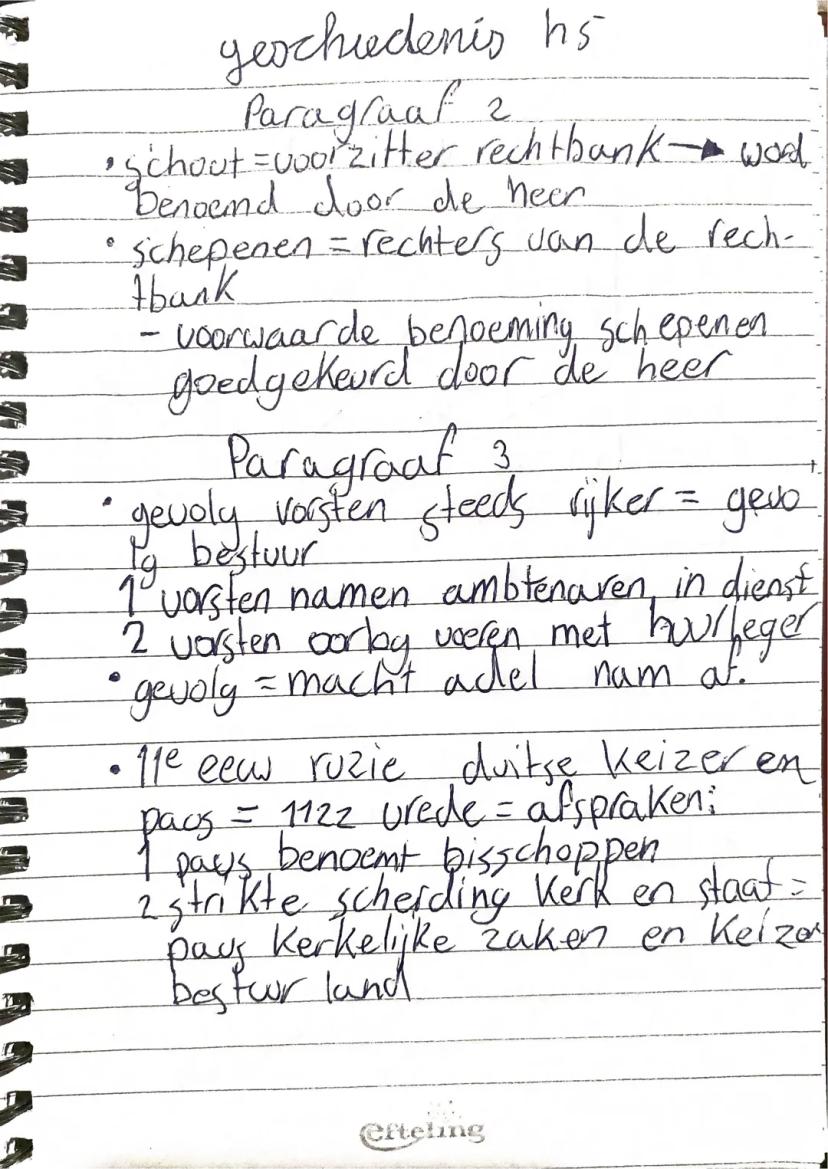 geschiedenis h5
Paragraaf 2
• schout = voorzitter rechtbank → word
benoemd door de heer
• schepenen = rechters van de rech-
tbank
- voorwaarde benoeming schepenen
goedgekeurd door de heer
Paragraaf 3
• gevolg vorsten steeds rijker = gevo
lg bestuur
1 vorsten namen ambtenaren in dienst
2 vorsten oorlog voeren met huurleger
• gevolg = macht adel nam af.
• 11e eeuw ruzie duitse keizer en
paus = 1122 vrede = afspraken:
1 paus benoemt bisschoppen
2 strikte scheiding kerk en staat =
paus kerkelijke zaken en keizer
bestuur land
efteling